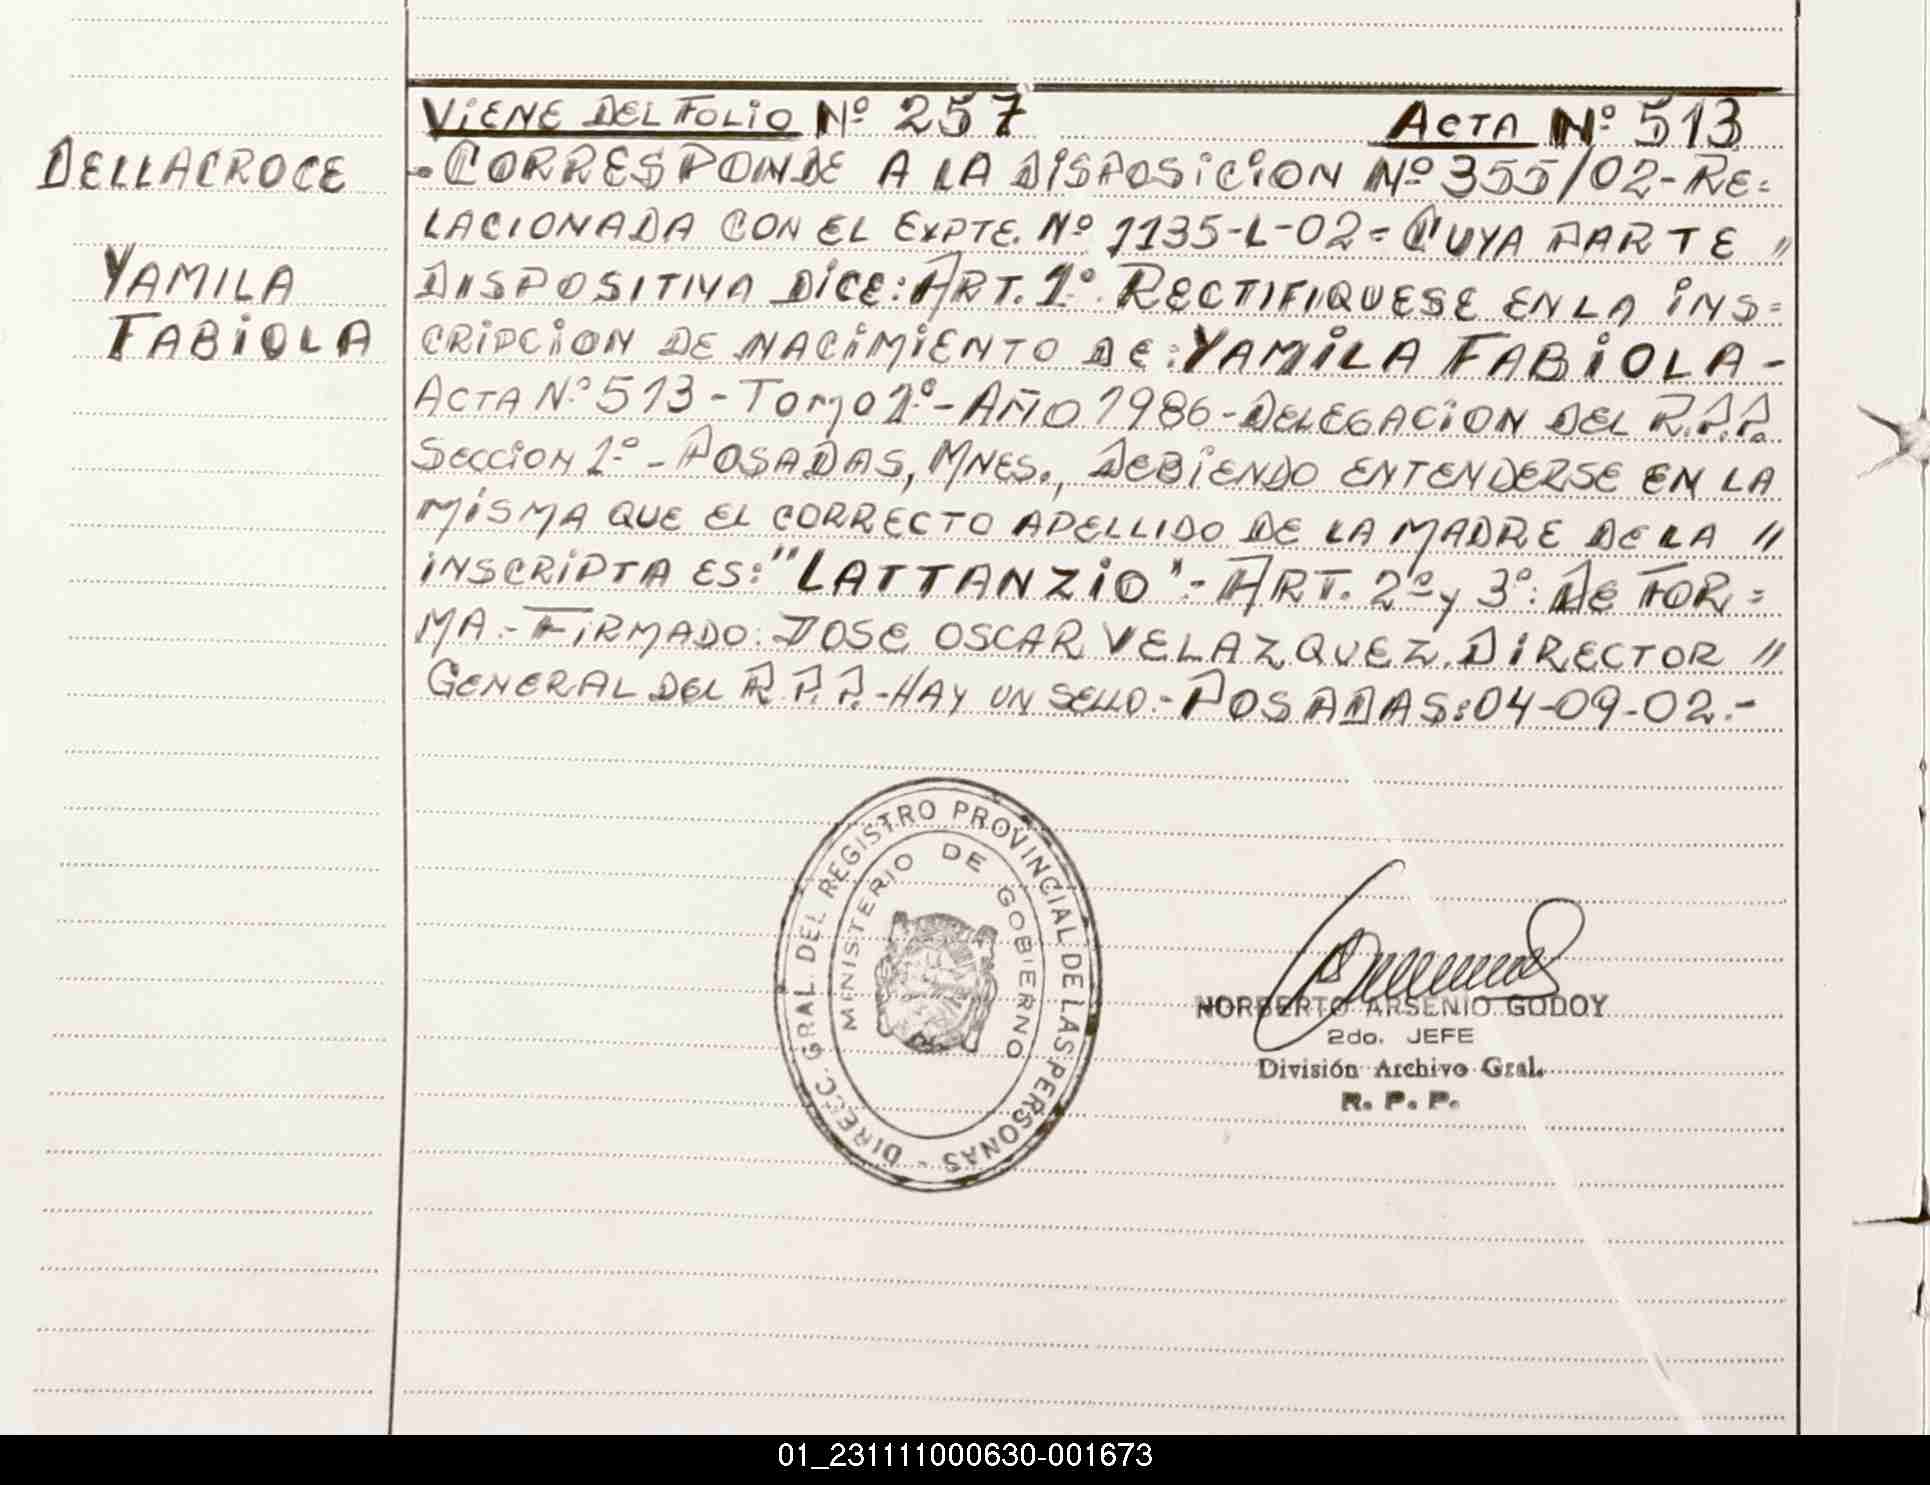 VIENE DEL FOLIO Nº 257 ACTA Nº 513
DELLACROCE
YAMILA
FABIOLA
-CORRESPONDE A LA DISPOSICION Nº 355/02-RE=
LACIONADA CON EL EXPTE. Nº 1135-L-02= CUYA PARTE "
DISPOSITIVA DICE: ART. 1º. RECTIFIQUESE EN LA INS=
CRIPCION DE NACIMIENTO DE: YAMILA FABIOLA-
ACTA Nº 513-Tomo 1º-AÑO 1986-DELEGACION DEL R.P.P.
SECCION 1º-POSADAS, MNES., DEBIENDO ENTENDERSE EN LA
MISMA QUE EL CORRECTO APELLIDO DE LA MADRE DE LA "
INSCRIPTA ES: "LATTANZIO"-ART. 2º y 3º: DE FOR=
MA.-FIRMADO: JOSE OSCAR VELAZQUEZ. DIRECTOR "
GENERAL DEL R.P.P.-HAY UN SELLO.-POSADAS: 04-09-02.-
DIRECC. GRAL. DEL REGISTRO PROVINCIAL DE LAS PERSONAS -
MINISTERIO DE GOBIERNO
NORBERTO ARSENIO GODOY
2do. JEFE
División Archivo Gral.
R. P. P.
01_231111000630-001673